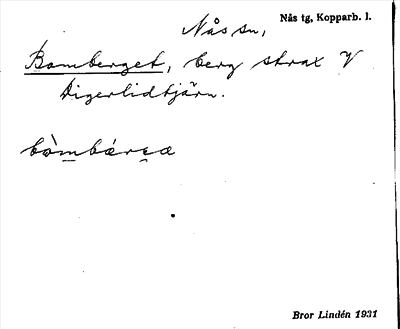 Nås sn, Nås tg, Kopparb. l.
Bomberget, berg strax V
Digerlidtjärn.
bòmbǽrɛ̯æ
Bror Lindén 1931